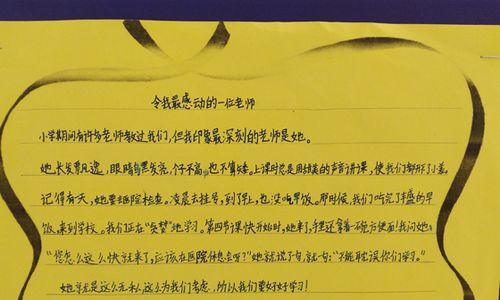 令我最感动的一位老师
小学期间有许多老师教过我们,但我印象最深刻的老师是她。
她长发飘逸,眼睛乌黑发亮,个子不高也不算矮。上课时总是用甜美的声音讲课,使我们都
记得有天,她要去医院检查。凌晨去挂号,到了早上,也没吃早饭。那时候,我们吃完了丰盛的早
饭,来到学校。我们正在"反赞"她学习。第四节课快开始时,她来了,手里还拿着一碗方便面!我问她:
"您怎么这么快就来了,应该在医院休息会呀?"她就说了句,就一句:"不能耽误你们学习。"
她就是这么无私,这么为我们考虑,所以我们要好好学习!